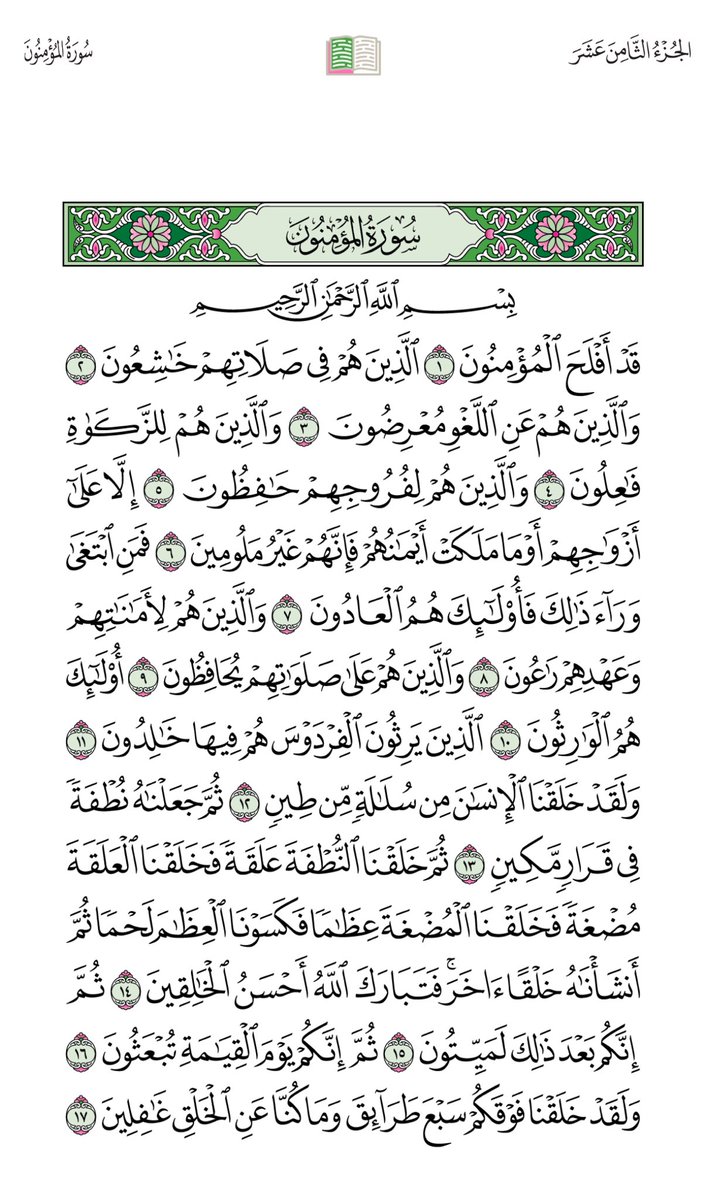 الجُزْءُ الثَّامِنَ عَشَرَ
سُورَةُ المُؤْمِنُونَ
سُورَةُ المُؤْمِنُونَ
بِسْمِ ٱللَّهِ ٱلرَّحْمَٰنِ ٱلرَّحِيمِ
قَدْ أَفْلَحَ ٱلْمُؤْمِنُونَ ١ ٱلَّذِينَ هُمْ فِى صَلَاتِهِمْ خَٰشِعُونَ ٢
وَٱلَّذِينَ هُمْ عَنِ ٱللَّغْوِ مُعْرِضُونَ ٣ وَٱلَّذِينَ هُمْ لِلزَّكَوٰةِ
فَٰعِلُونَ ٤ وَٱلَّذِينَ هُمْ لِفُرُوجِهِمْ حَٰفِظُونَ ٥ إِلَّا عَلَىٰٓ
أَزْوَٰجِهِمْ أَوْ مَا مَلَكَتْ أَيْمَٰنُهُمْ فَإِنَّهُمْ غَيْرُ مَلُومِينَ ٦ فَمَنِ ٱبْتَغَىٰ
وَرَآءَ ذَٰلِكَ فَأُو۟لَٰٓئِكَ هُمُ ٱلْعَادُونَ ٧ وَٱلَّذِينَ هُمْ لِأَمَٰنَٰتِهِمْ
وَعَهْدِهِمْ رَٰعُونَ ٨ وَٱلَّذِينَ هُمْ عَلَىٰ صَلَوَٰتِهِمْ يُحَافِظُونَ ٩ أُو۟لَٰٓئِكَ
هُمُ ٱلْوَٰرِثُونَ ١٠ ٱلَّذِينَ يَرِثُونَ ٱلْفِرْدَوْسَ هُمْ فِيهَا خَٰلِدُونَ ١١
وَلَقَدْ خَلَقْنَا ٱلْإِنسَٰنَ مِن سُلَٰلَةٍ مِّن طِينٍ ١٢ ثُمَّ جَعَلْنَٰهُ نُطْفَةً
فِى قَرَارٍ مَّكِينٍ ١٣ ثُمَّ خَلَقْنَا ٱلنُّطْفَةَ عَلَقَةً فَخَلَقْنَا ٱلْعَلَقَةَ
مُضْغَةً فَخَلَقْنَا ٱلْمُضْغَةَ عِظَٰمًا فَكَسَوْنَا ٱلْعِظَٰمَ لَحْمًا ثُمَّ
أَنشَأْنَٰهُ خَلْقًا ءَاخَرَ ۚ فَتَبَارَكَ ٱللَّهُ أَحْسَنُ ٱلْخَٰلِقِينَ ١٤ ثُمَّ
إِنَّكُم بَعْدَ ذَٰلِكَ لَمَيِّتُونَ ١٥ ثُمَّ إِنَّكُمْ يَوْمَ ٱلْقِيَٰمَةِ تُبْعَثُونَ ١٦
وَلَقَدْ خَلَقْنَا فَوْقَكُمْ سَبْعَ طَرَآئِقَ وَمَا كُنَّا عَنِ ٱلْخَلْقِ غَٰفِلِينَ ١٧